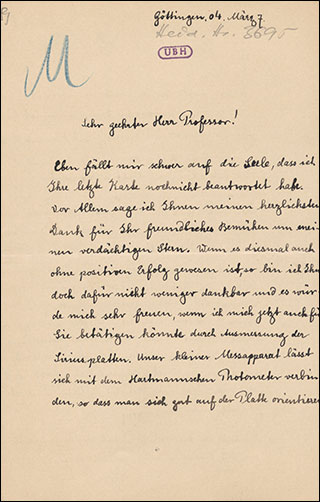 Göttingen, 04. März 7
Heid. Hs. 3695
UBH
M
Sehr geehrter Herr Professor!
Eben fällt mir schwer auf die Seele, dass ich
Ihre letzte Karte noch nicht beantwortet habe.
Vor Allem sage ich Ihnen meinen herzlichsten
Dank für Ihr freundliches Bemühen um mei-
nen verdächtigen Stern. Wenn es diesmal auch
ohne positiven Erfolg gewesen ist, so bin ich Ihn
doch dafür nicht weniger dankbar und es wür
de mich sehr freuen, wenn ich mich jetzt auch fü
Sie betätigen könnte durch Ausmessung der
Siriusplatten. Unser kleiner Messapparat lässt
sich mit dem Hartmannschen Photometer verbin
den, so dass man sich gut auf der Platte orientieren